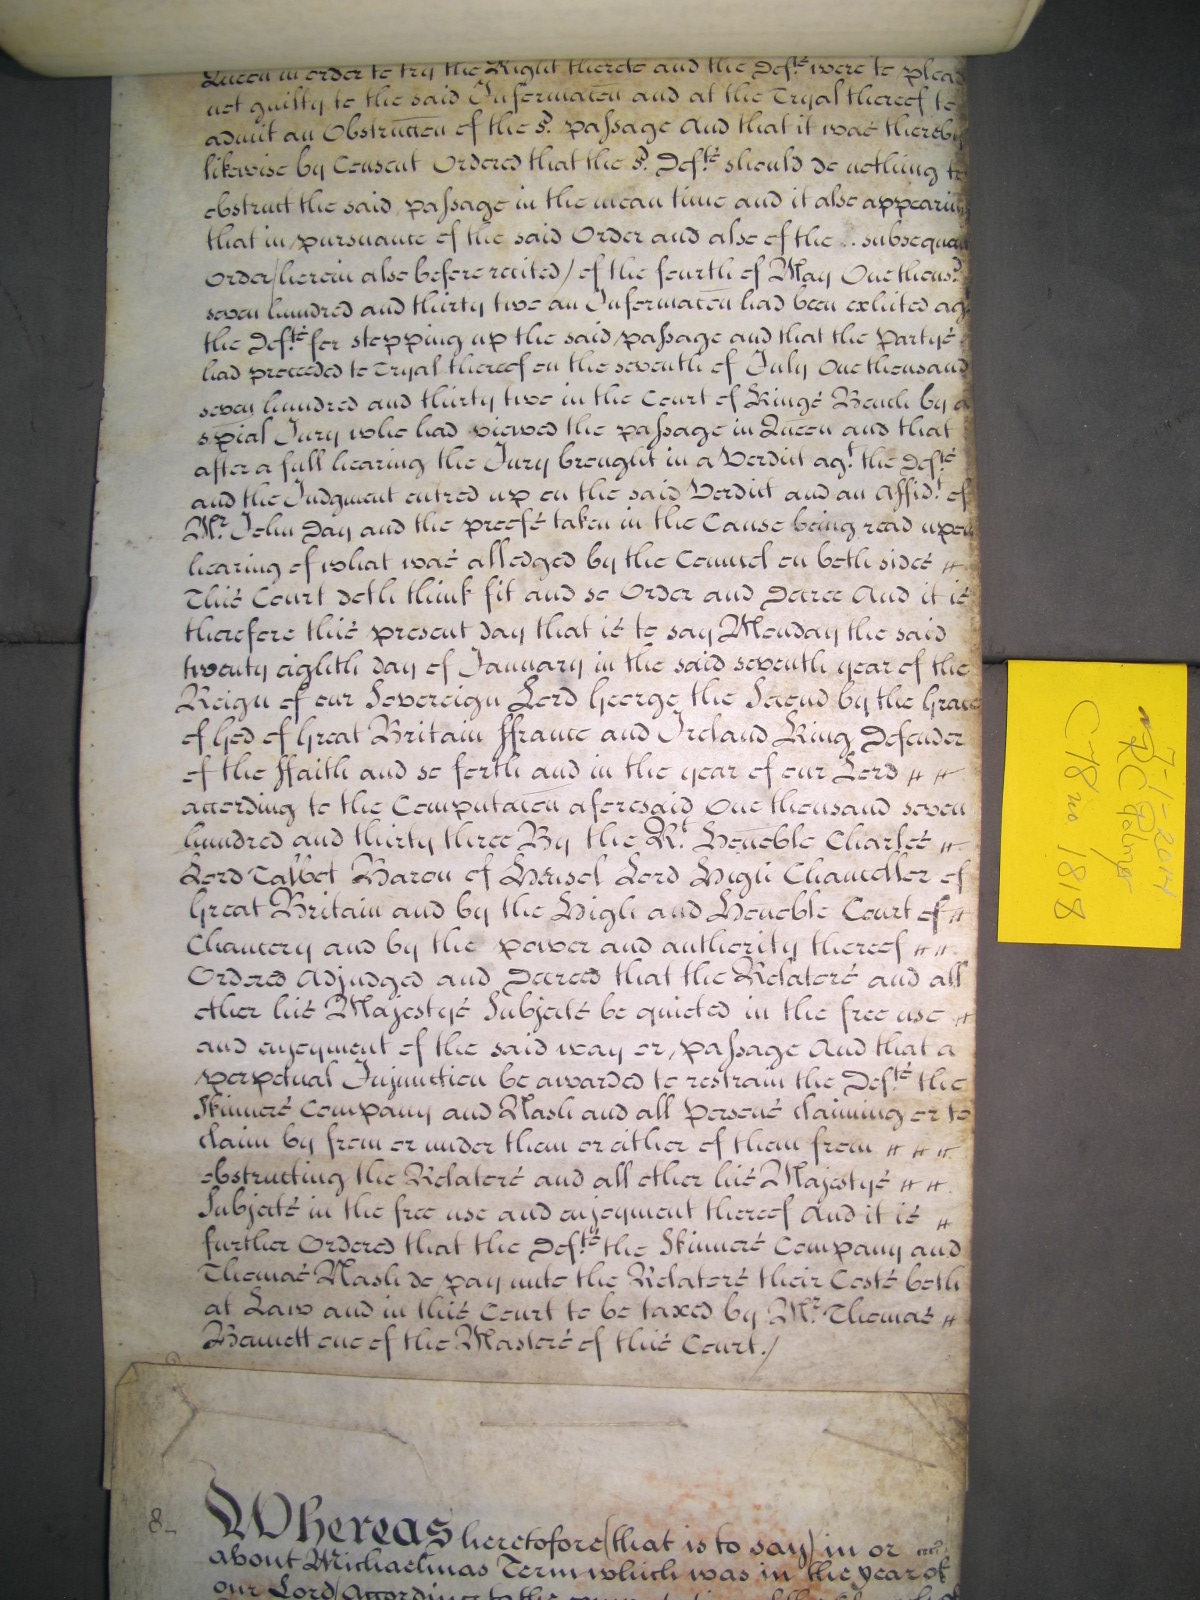 Queen in order to try the Right thereto and the Def:ts were to plead
not guilty to the said Informacon and at the Tryal thereof to
admit an Obstruccon of the sd. passage And that it was thereby
likewise by Consent Ordered that the sd. Def:ts should do nothing to
obstruct the said passage in the mean time and it also appearing
that in pursuance of the said Order and also of the .. subsequent
Order/herein also before recited/ of the fourth of May One thous:d
seven hundred and thirty two an Informacon had been exhited agt
the Def:ts for stopping up the said passage and that the Partys
had proceeded to Tryal thereof on the seventh of July One thousand
seven hundred and thirty two in the Court of Kings Bench by a
spial Jury who had viewed the passage in Queen and that
after a full hearing the Jury brought in a Verdict ag:t the Def:ts
and the Judgment entred up on the said Verdict and an Affid:t of
Mr. John Day and the proofs taken in the Cause being read upon
hearing of what was alledged by the Councel on both sides
This Court doth think fit and so Order and Decree And it is
therefore this present day that is to say Monday the said
twenty eighth day of January in the said seventh year of the
Reign of our Sovereign Lord George the Second by the Grace
of God of Great Britain ffrance and Ireland King Defender
of the ffaith and so forth and in the year of our Lord
according to the Computacon aforesaid One thousand seven
hundred and thirty three By the Rt. Honoble Charles
Lord Talbot Baron of Hensol Lord High Chancellor of
Great Britain and by the High and Honoble Court of
Chancery and by the power and authority thereof
Ordered Adjudged and Decreed that the Relators and all
other his Majestys Subjects be quieted in the free use
and enjoyment of the said way or passage And that a
perpetual Injunction be awarded to restrain the Def:ts the
Skinners Company and Nash and all Persons claiming or to
claim by from or under them or either of them from
obstructing the Relators and all other his Majestys
Subjects in the free use and enjoyment thereof And it is
further Ordered that the Def:ts the Skinners Company and
Thomas Nash do pay unto the Relators their Costs both
at Law and in this Court to be taxed by Mr. Thomas
Bennett one of the Masters of this Court./
8_
Whereas heretofore (that is to say) in or
about Michaelmas Term which was in the year of
our Lord/According to the
7-1-2014
C78 no 1818